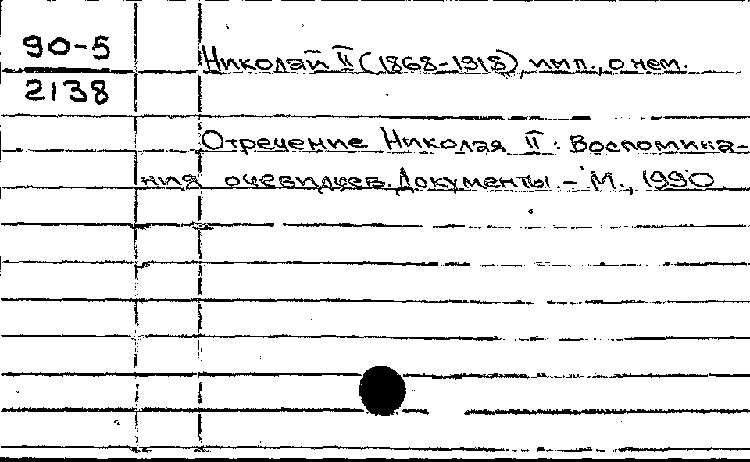 90-5
2138
Николай II (1868-1918), имп., о нем.
Отречение Николая II: Воспомина-
ния очевидцев. Документы. - М., 1990